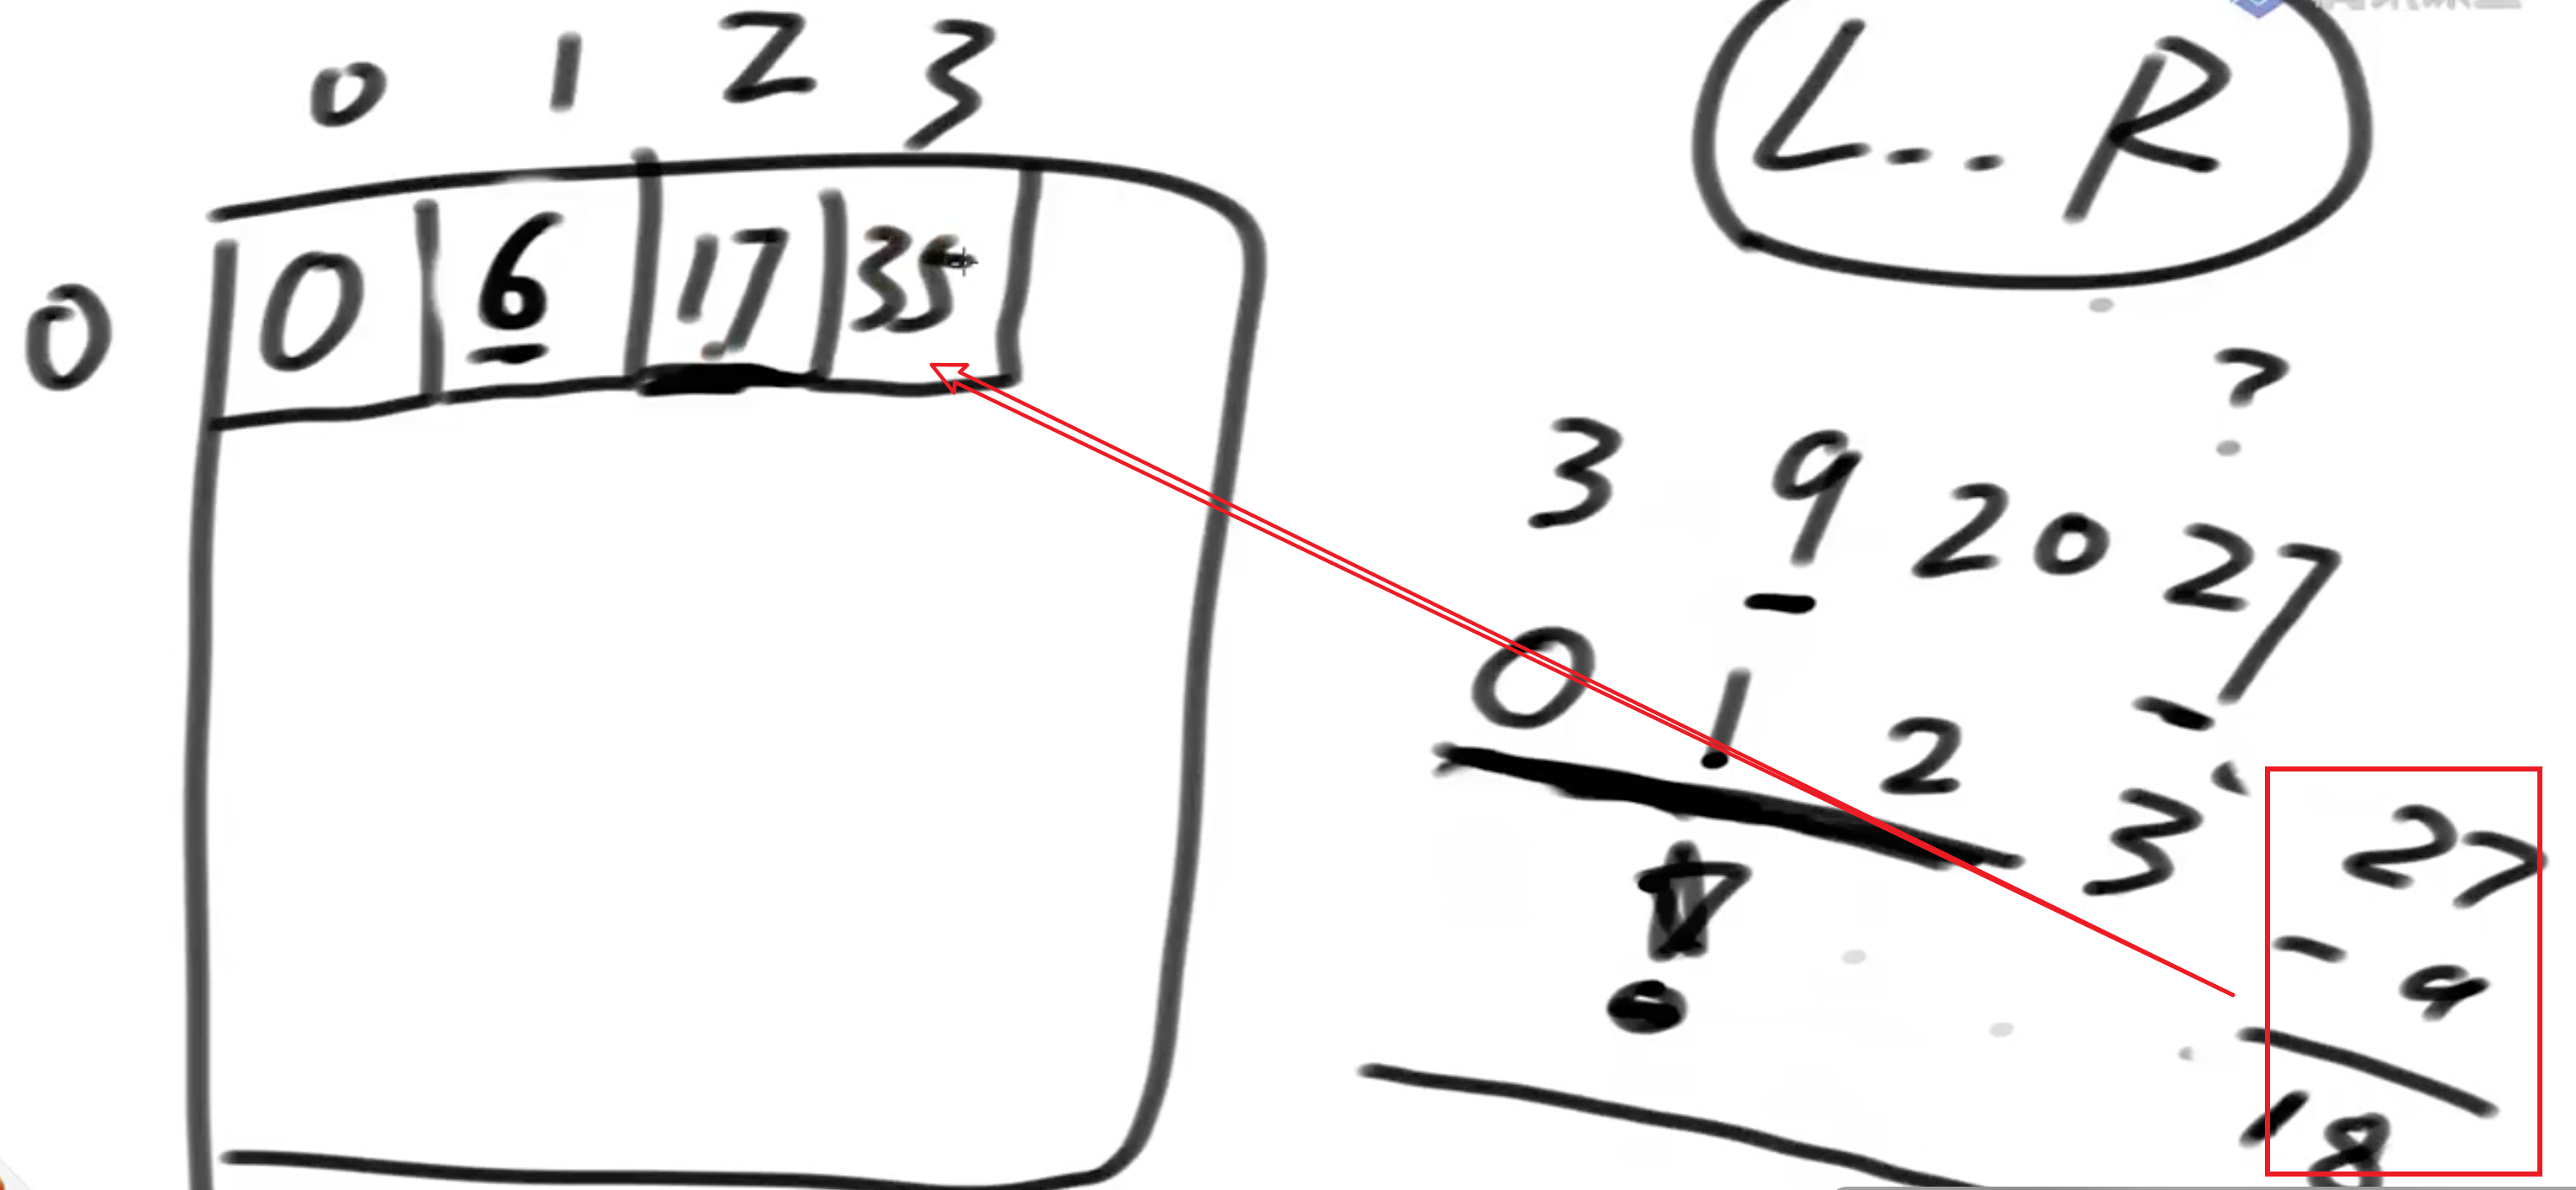 0 1 2 3
L... R
0 0 6 17 35
?
3 9 20 27
0 1 2 3
27
- 9
18